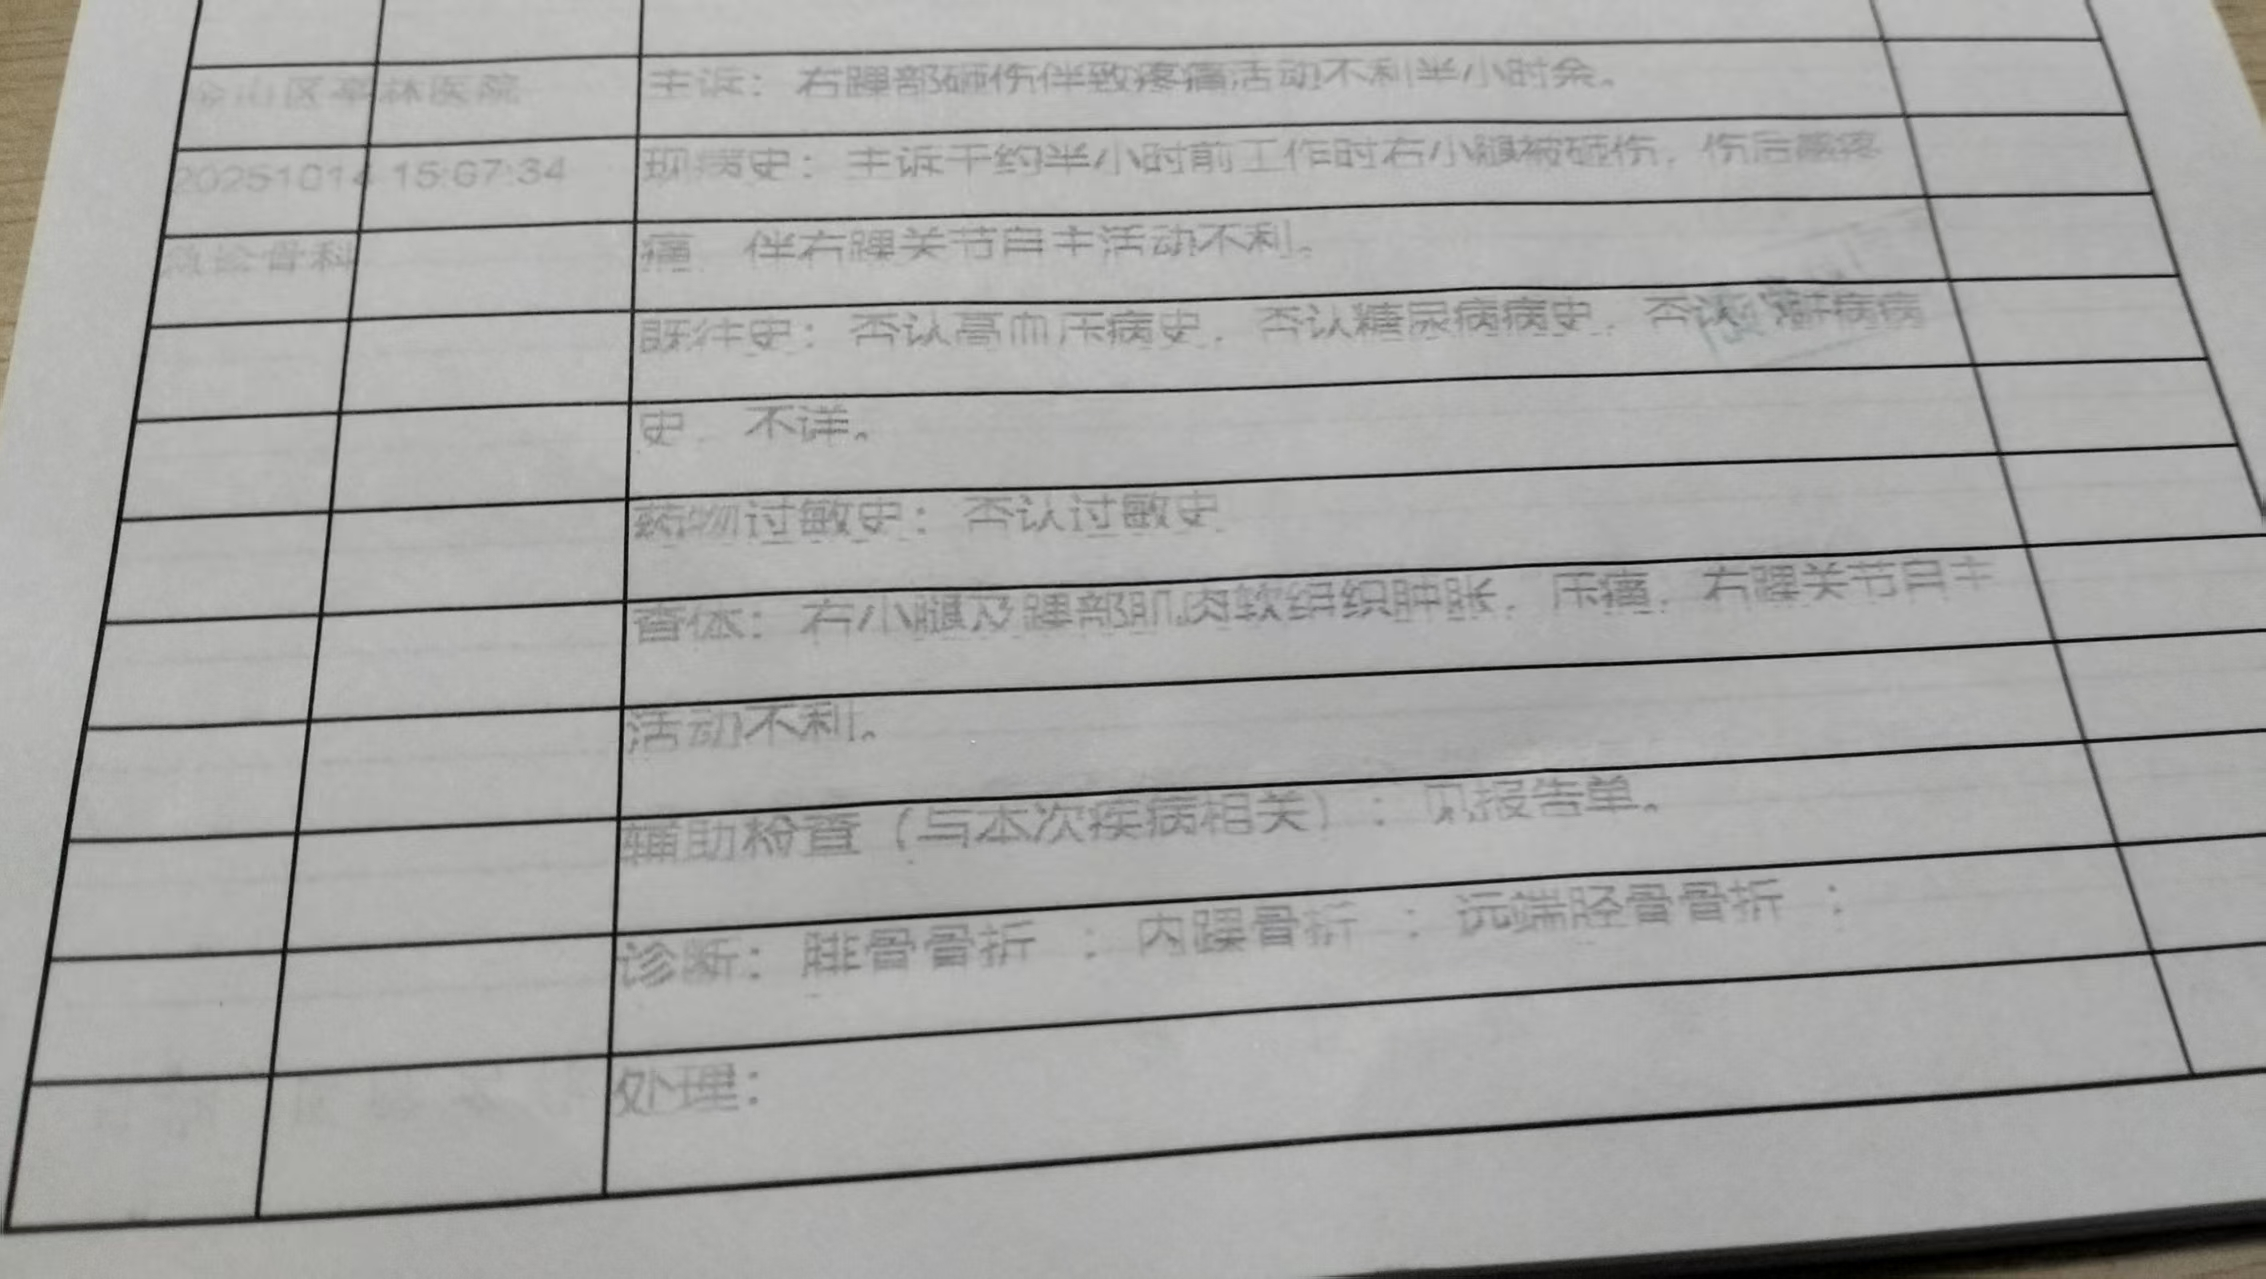 金山区亭林医院
主诉：右踝部砸伤伴致疼痛活动不利半小时余。
20251014 15:07:34
现病史：主诉于约半小时前工作时右小腿被砸伤，伤后感疼
急诊骨科
痛，伴右踝关节自主活动不利。
既往史：否认高血压病史，否认糖尿病病史，否认 病病
史，不详。
药物过敏史：否认过敏史
查体：右小腿及踝部肌肉软组织肿胀，压痛，右踝关节自主
活动不利。
辅助检查（与本次疾病相关）：见报告单。
诊断：腓骨骨折 ；内踝骨折 ；远端胫骨骨折 ；
处理：